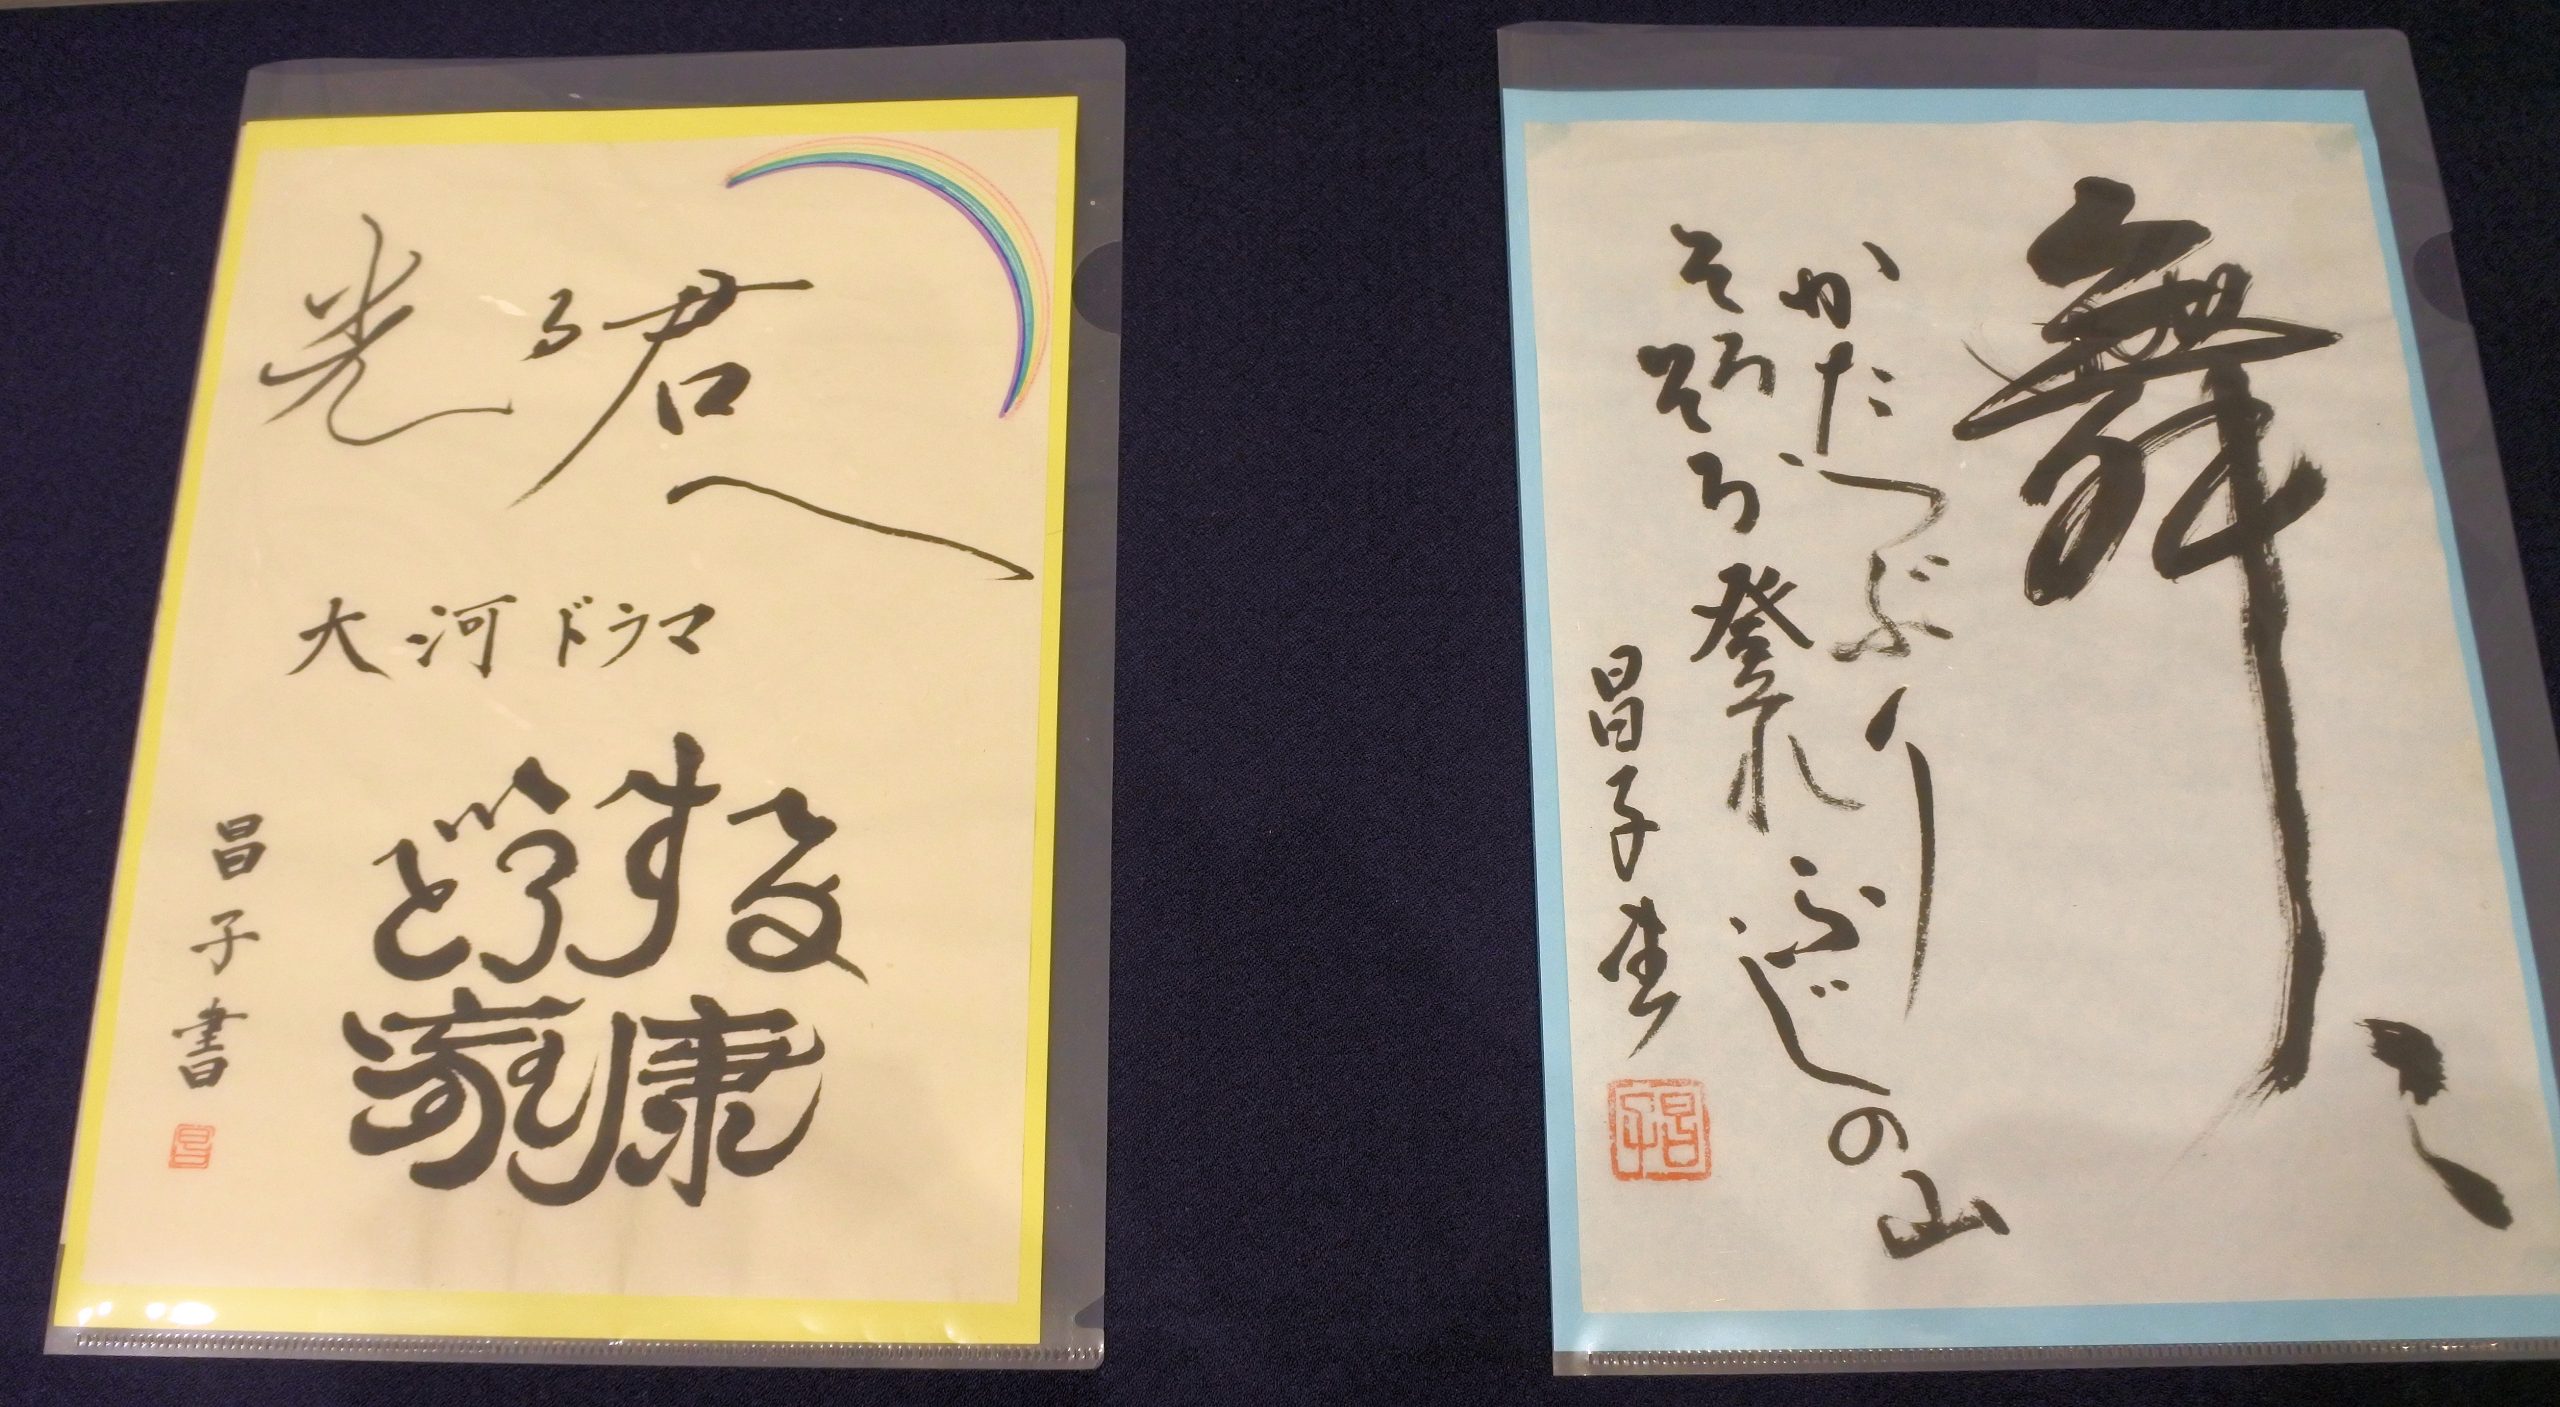 光る君へ
大河ドラマ
どうする
家康
昌子書
昌
舞
かたつぶり
そろそろ登れ
ふじの山
昌子書
昌子